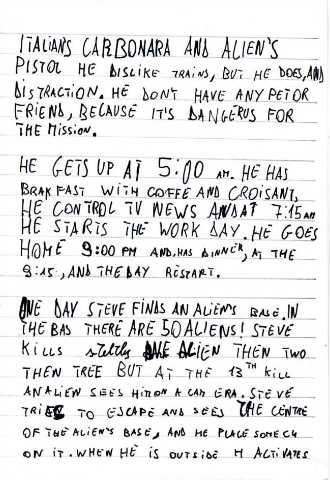 ITALIANS CARBONARA AND ALIEN'S
PISTOL HE DISLIKE TRAINS, BUT HE DOES, AND
DISTRACTION. HE DON'T HAVE ANY PET OR
FRIEND, BECAUSE IT'S DANGERUS FOR
THE MISSION.
HE GETS UP AT 5:00 AM. HE HAS
BRAKFAST WITH COFFE AND CROISANT,
HE CONTROL TV NEWS AND AT 7:15 AM
HE STARTS THE WORK DAY. HE GOES
HOME 9:00 PM AND, HAS DINNER, AT THE
9:15, AND THE DAY RESTART.
ONE DAY STEVE FINDS AN ALIEN'S BASE. IN
THE BAS THERE ARE 50 ALIENS! STEVE
KILLS ALIEN THEN TWO
THEN TREE BUT AT THE 13TH KILL
AN ALIEN SEES HIM ON A CAM ERA. STEVE
TRIES TO ESCAPE AND SEES THE CENTRE
OF THE ALIEN'S BASE, AND HE PLACE SOME C4
ON IT. WHEN HE IS OUTSIDE ACTIVATES